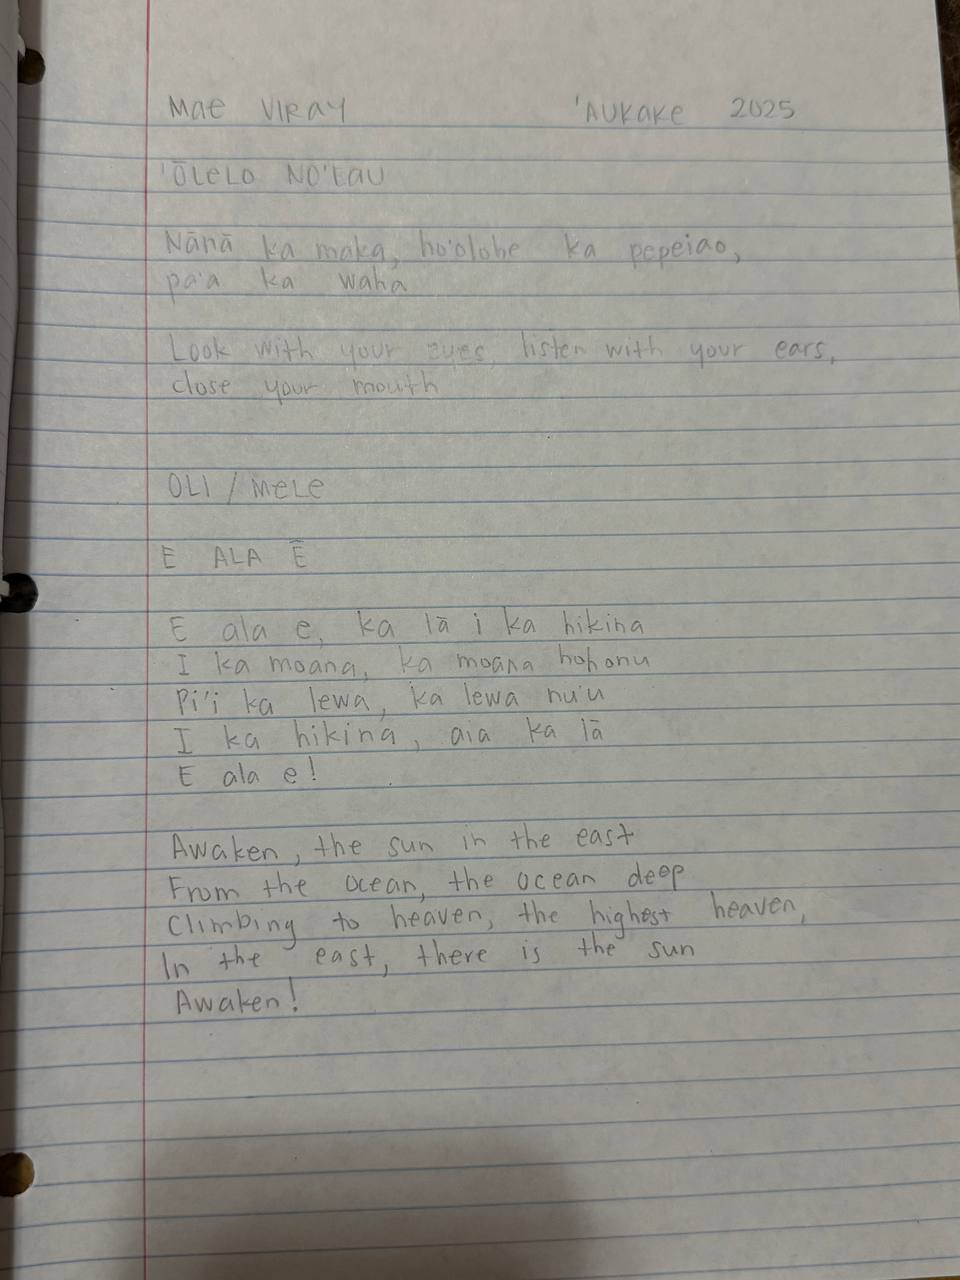 Mae Viray 'Aukake 2025
'ŌLELO NO'EAU
Nānā ka maka, ho'olohe ka pepeiao,
pa'a ka waha
Look with your eyes, listen with your ears,
close your mouth
OLI / MELE
E ALA Ē
E ala e, ka lā i ka hikina
I ka moana, ka moana hohonu
Pi'i ka lewa, ka lewa nu'u
I ka hikina, aia ka lā
E ala e!
Awaken, the sun in the east
From the ocean, the ocean deep
Climbing to heaven, the highest heaven,
In the east, there is the sun
Awaken!